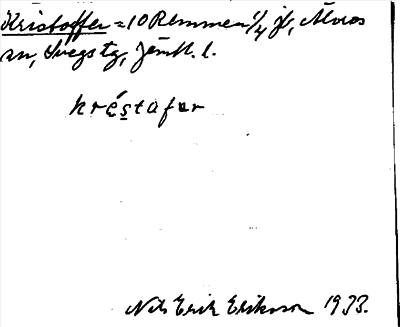 Kristoffer = 10 Remmen 1/4 jf, Älvros
sn, Svegs tg, Jämtl. l.
kréstafar
Nils Erik Eriksson 1933.